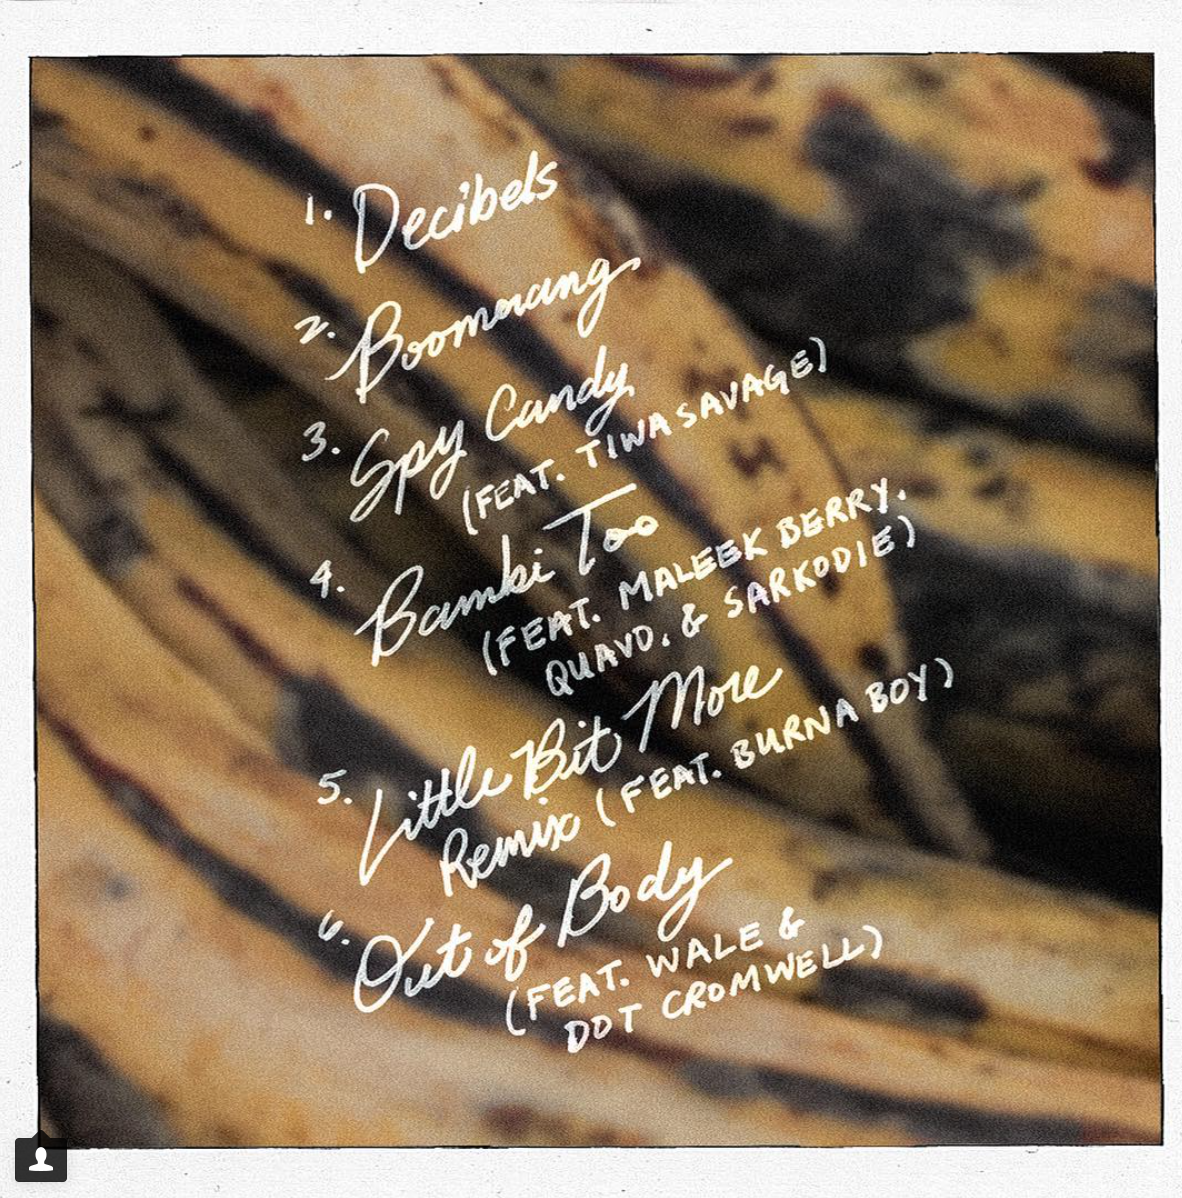 1. Decibels
2. Boomerang
3. Spy Candy
(FEAT. TIWA SAVAGE)
4. Bambi Too
(FEAT. MALEEK BERRY,
QUAVO, & SARKODIE)
5. Little Bit More
Remix (FEAT. BURNA BOY)
6. Out of Body
(FEAT. WALE &
DOT CROMWELL)